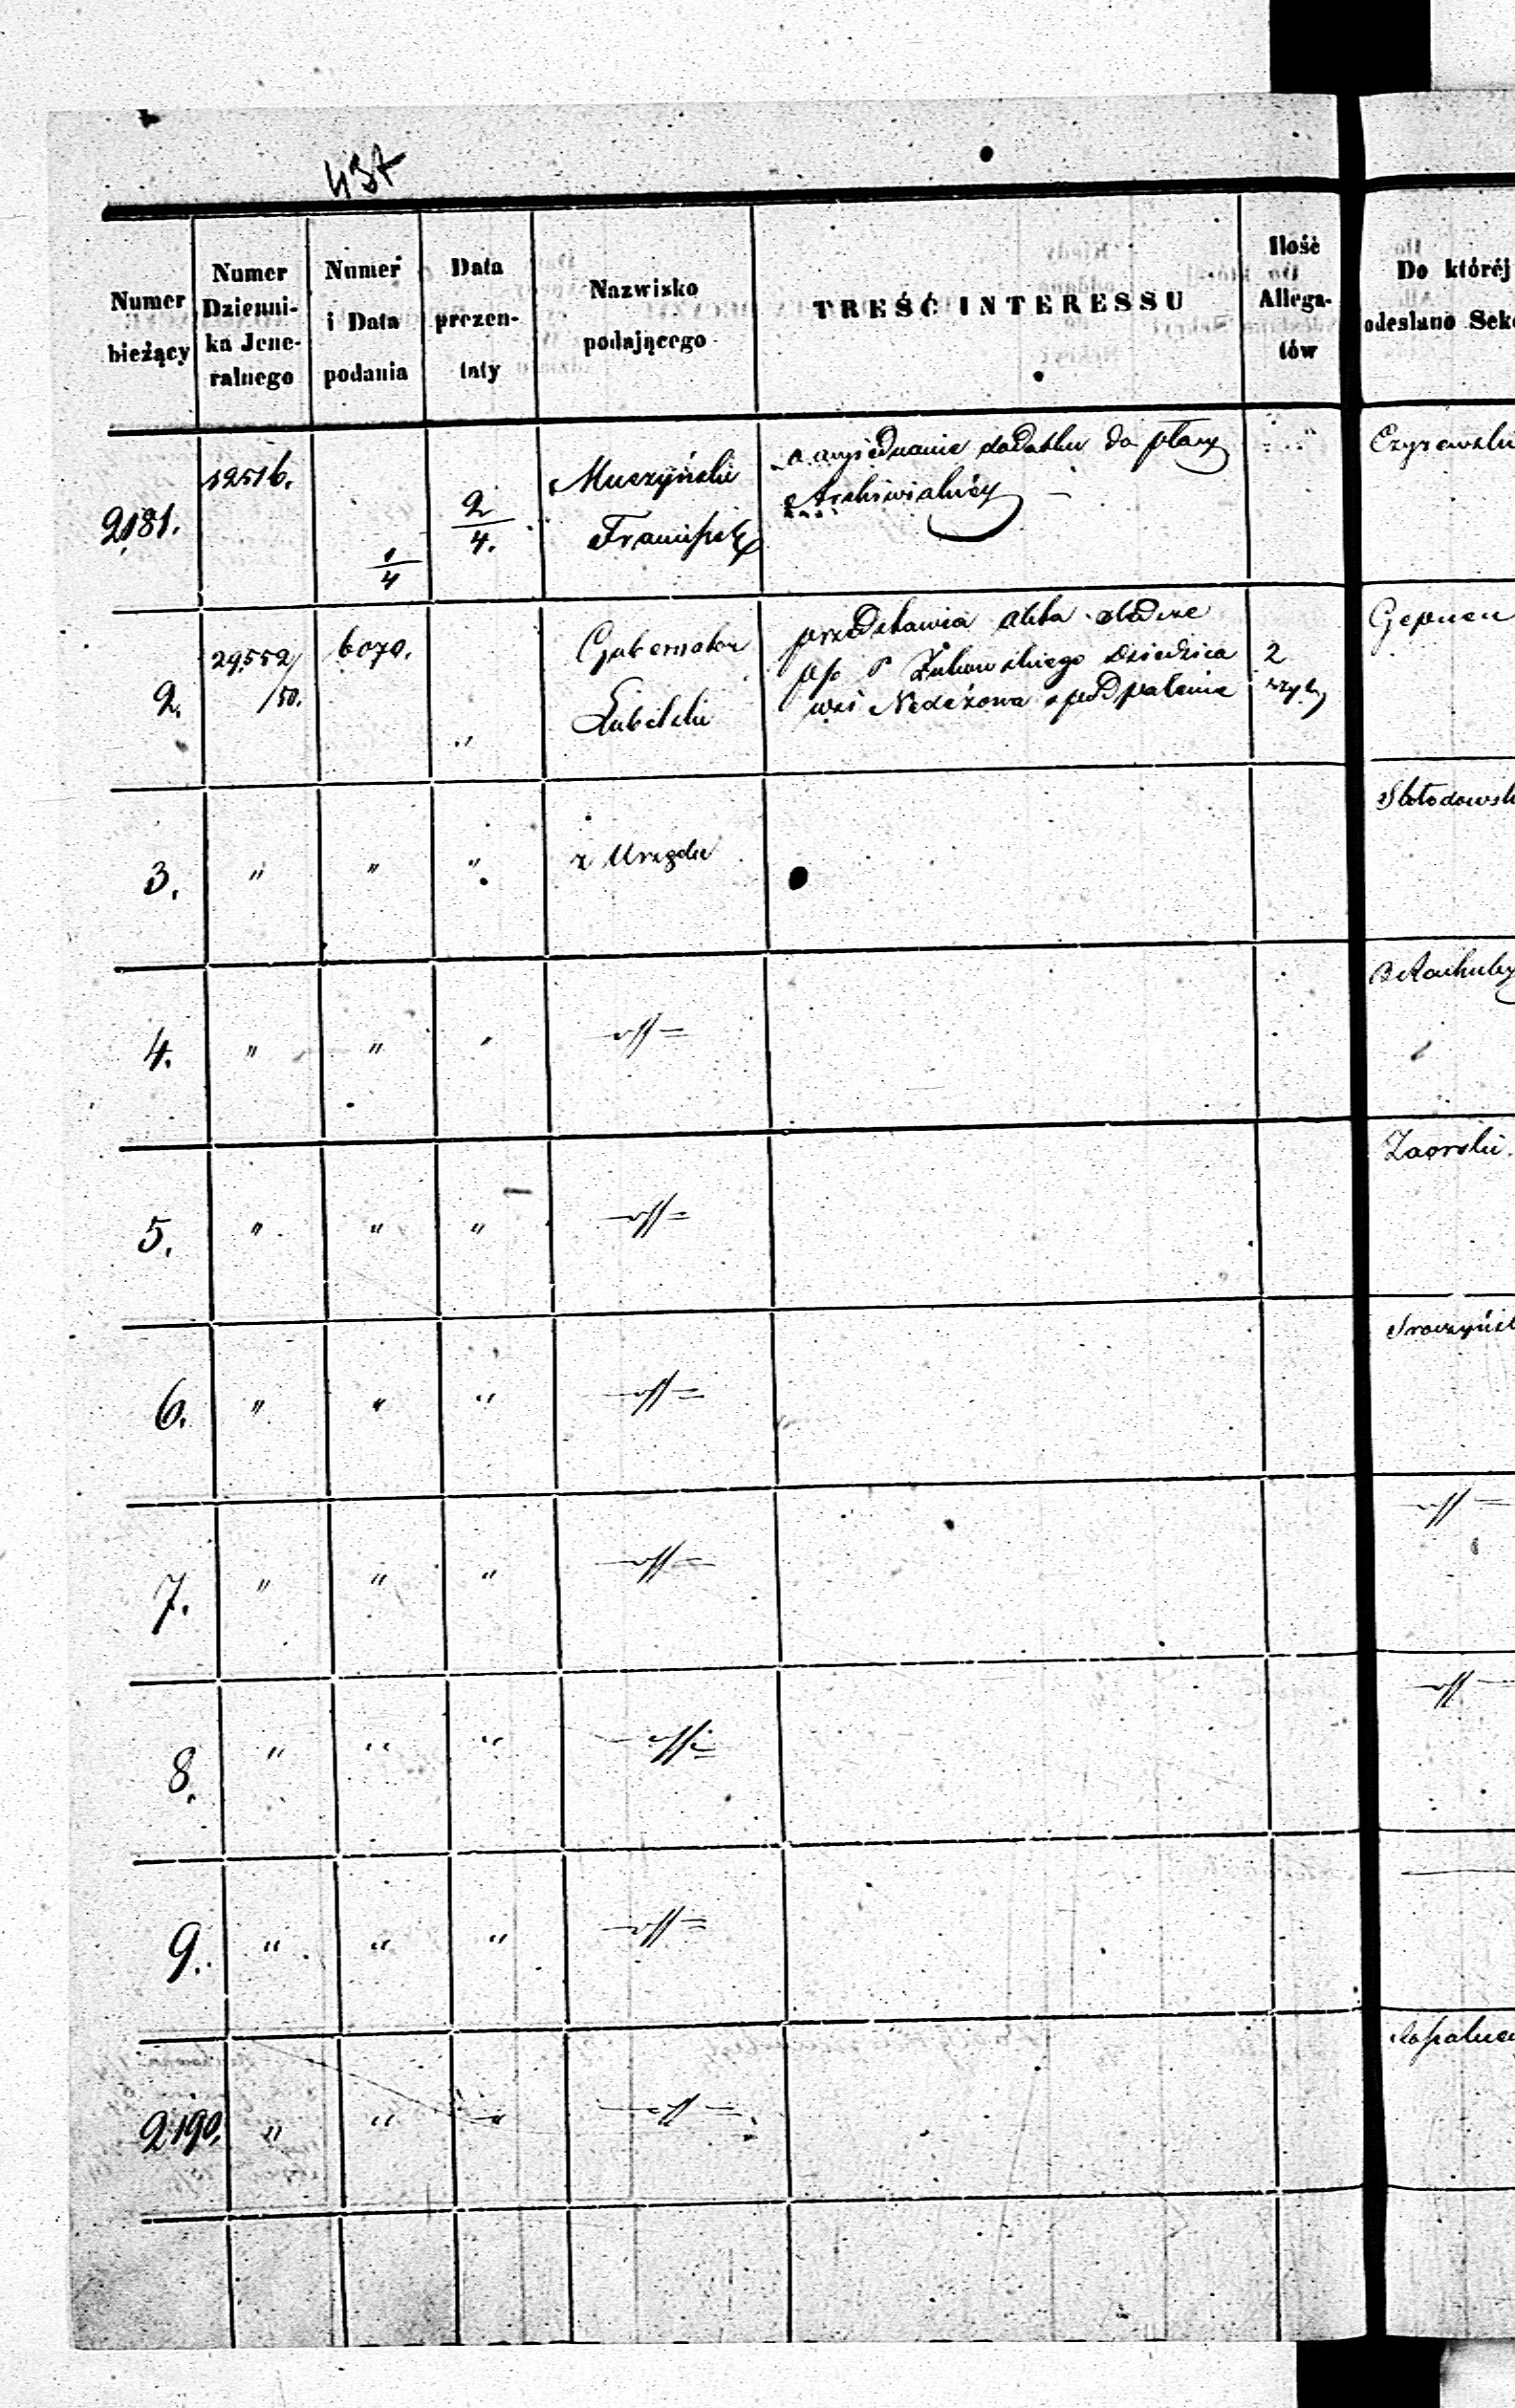 437
Numer bieżący
Numer Dzienni-ka Jene-ralnego
Numer i Data podania
Data prezen-taty
Nazwisko podającego
TREŚĆ INTERESSU
Ilość Allega-tów
Do któréj odesłano Sek
2181.
12516.
1/4
2/4.
Muczyński
Franciszek
o wyjednanie dodatku do płacy
Archiwialnéj
Czyzewski
2.
29552/50.
6070.
"
Gubernator
Lubelski
przedstawia akta śledcze
P Żukowskiego dziedzica
wsi Nedeżowa o podpalenie
2
Gepner
3.
"
"
"
z Urzędu
Skłodowsk
4.
"
"
"
5.
"
"
"
Zaorski.
6.
"
"
"
7.
"
"
"
8.
"
"
"
9.
"
"
"
2190.
"
"
"